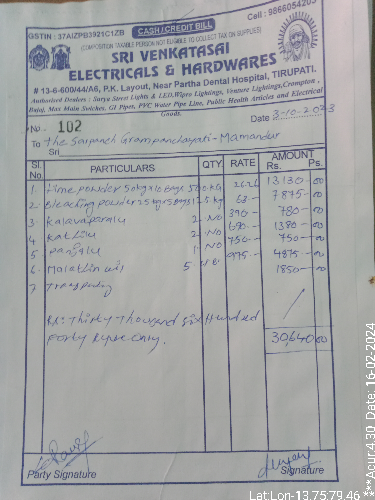 GSTIN : 37AIZPB3921C1ZB
CASH / CREDIT BILL
Cell : 9866054203
(COMPOSITION TAXABLE PERSON NOT ELIGIBLE TO COLLECT TAX ON SUPPLIES)
SRI VENKATASAI
ELECTRICALS & HARDWARES
# 13-6-600/44/A6, P.K. Layout, Near Partha Dental Hospital, TIRUPATI.
Authorised Dealers : Surya Street Lights & LED, Wipro Lightings, Venture Lightings, Crompton,
Bajaj, Max Main Switches, GI Piper, PVC Water Pipe Line, Public Health Articles and Electrical
Goods.
No. 102
Date 3-10-2023
To The Sarpanch Grampanchayati-Mamandur
Sri
Sl. No. PARTICULARS QTY. RATE AMOUNT Rs. Ps.
1 Lime powder 50kg 10 Bags 500 kg 2626 13130-00
2 Bleaching powder 25kg 5 Bags 125 kg 63- 7875-00
3 Kalavaparalu 2 NO 390- 780-00
4 2 NO 690- 1380-00
5 1 NO 750- 750-00
6 Malathin oil 5 975- 4875-00
7 1850-00
Rs: Thirty Thousand Six Hundred
Forty Rupee Only.
30,640 00
Party Signature
Signature
Lat:Lon-13.7579.46***Acur:4.30 Date: 16-02-2024